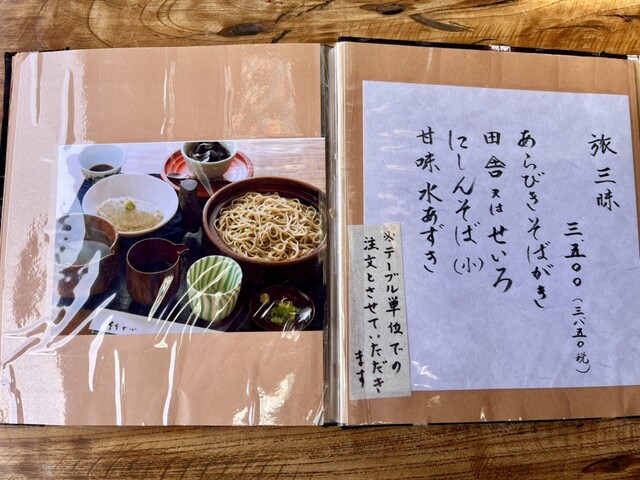 旅三昧
三五〇〇（三八五〇税）
あらびきそばがき
田舎又はせいろ
にしんそば（小）
甘味 水あずき
※テーブル単位での
注文とさせていただき
ます